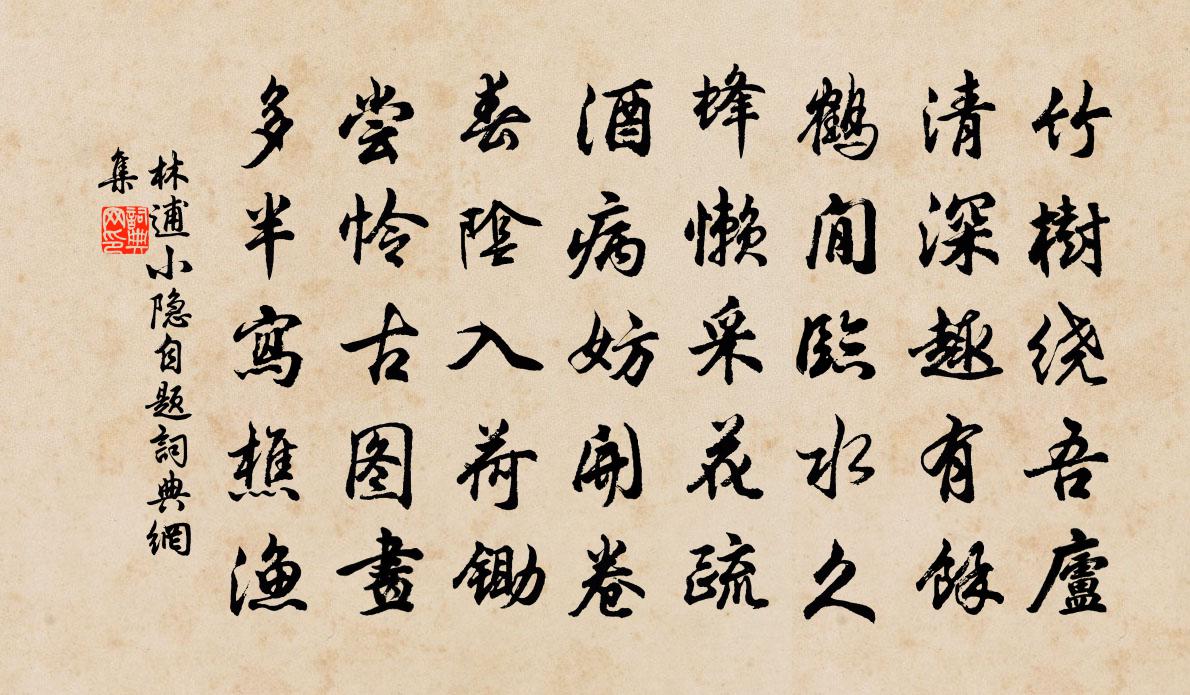 竹樹绕吾廬
清深趣有餘
鶴閒臨水久
蜂懒采花疏
酒病妨開卷
春陰入荷鋤
尝怜古图畫
多半寫樵漁
林逋小隐自题詞典網
集
詞典
网印